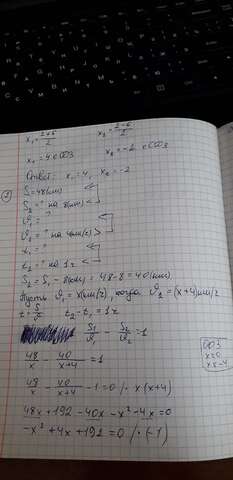 x₁ = (2+6)/2        x₂ = (2-6)/2
x₁ = 4 ∈ ОДЗ        x₂ = -2 ∈ ОДЗ
Ответ: x₁ = 4, x₂ = -2
S₁ = 48(км)
S₂ = " на 8(км) <
V₁ = "
V₂ = " на 4(км/ч) >
t₁ = "
t₂ = " на 1ч <
S₂ = S₁ - 8(км) = 48-8 = 40(км)
Пусть V₁ = x(км/ч), тогда V₂ = (x+4)км/ч
t = S/V   t₂ - t₁ = 1ч
S₁/V₁ - S₂/V₂ = 1
48/x - 40/(x+4) = 1
ОДЗ
48/x - 40/(x+4) - 1 = 0 /· x(x+4)
48x + 192 - 40x - x² - 4x = 0
-x² + 4x + 192 = 0 /·(-1)